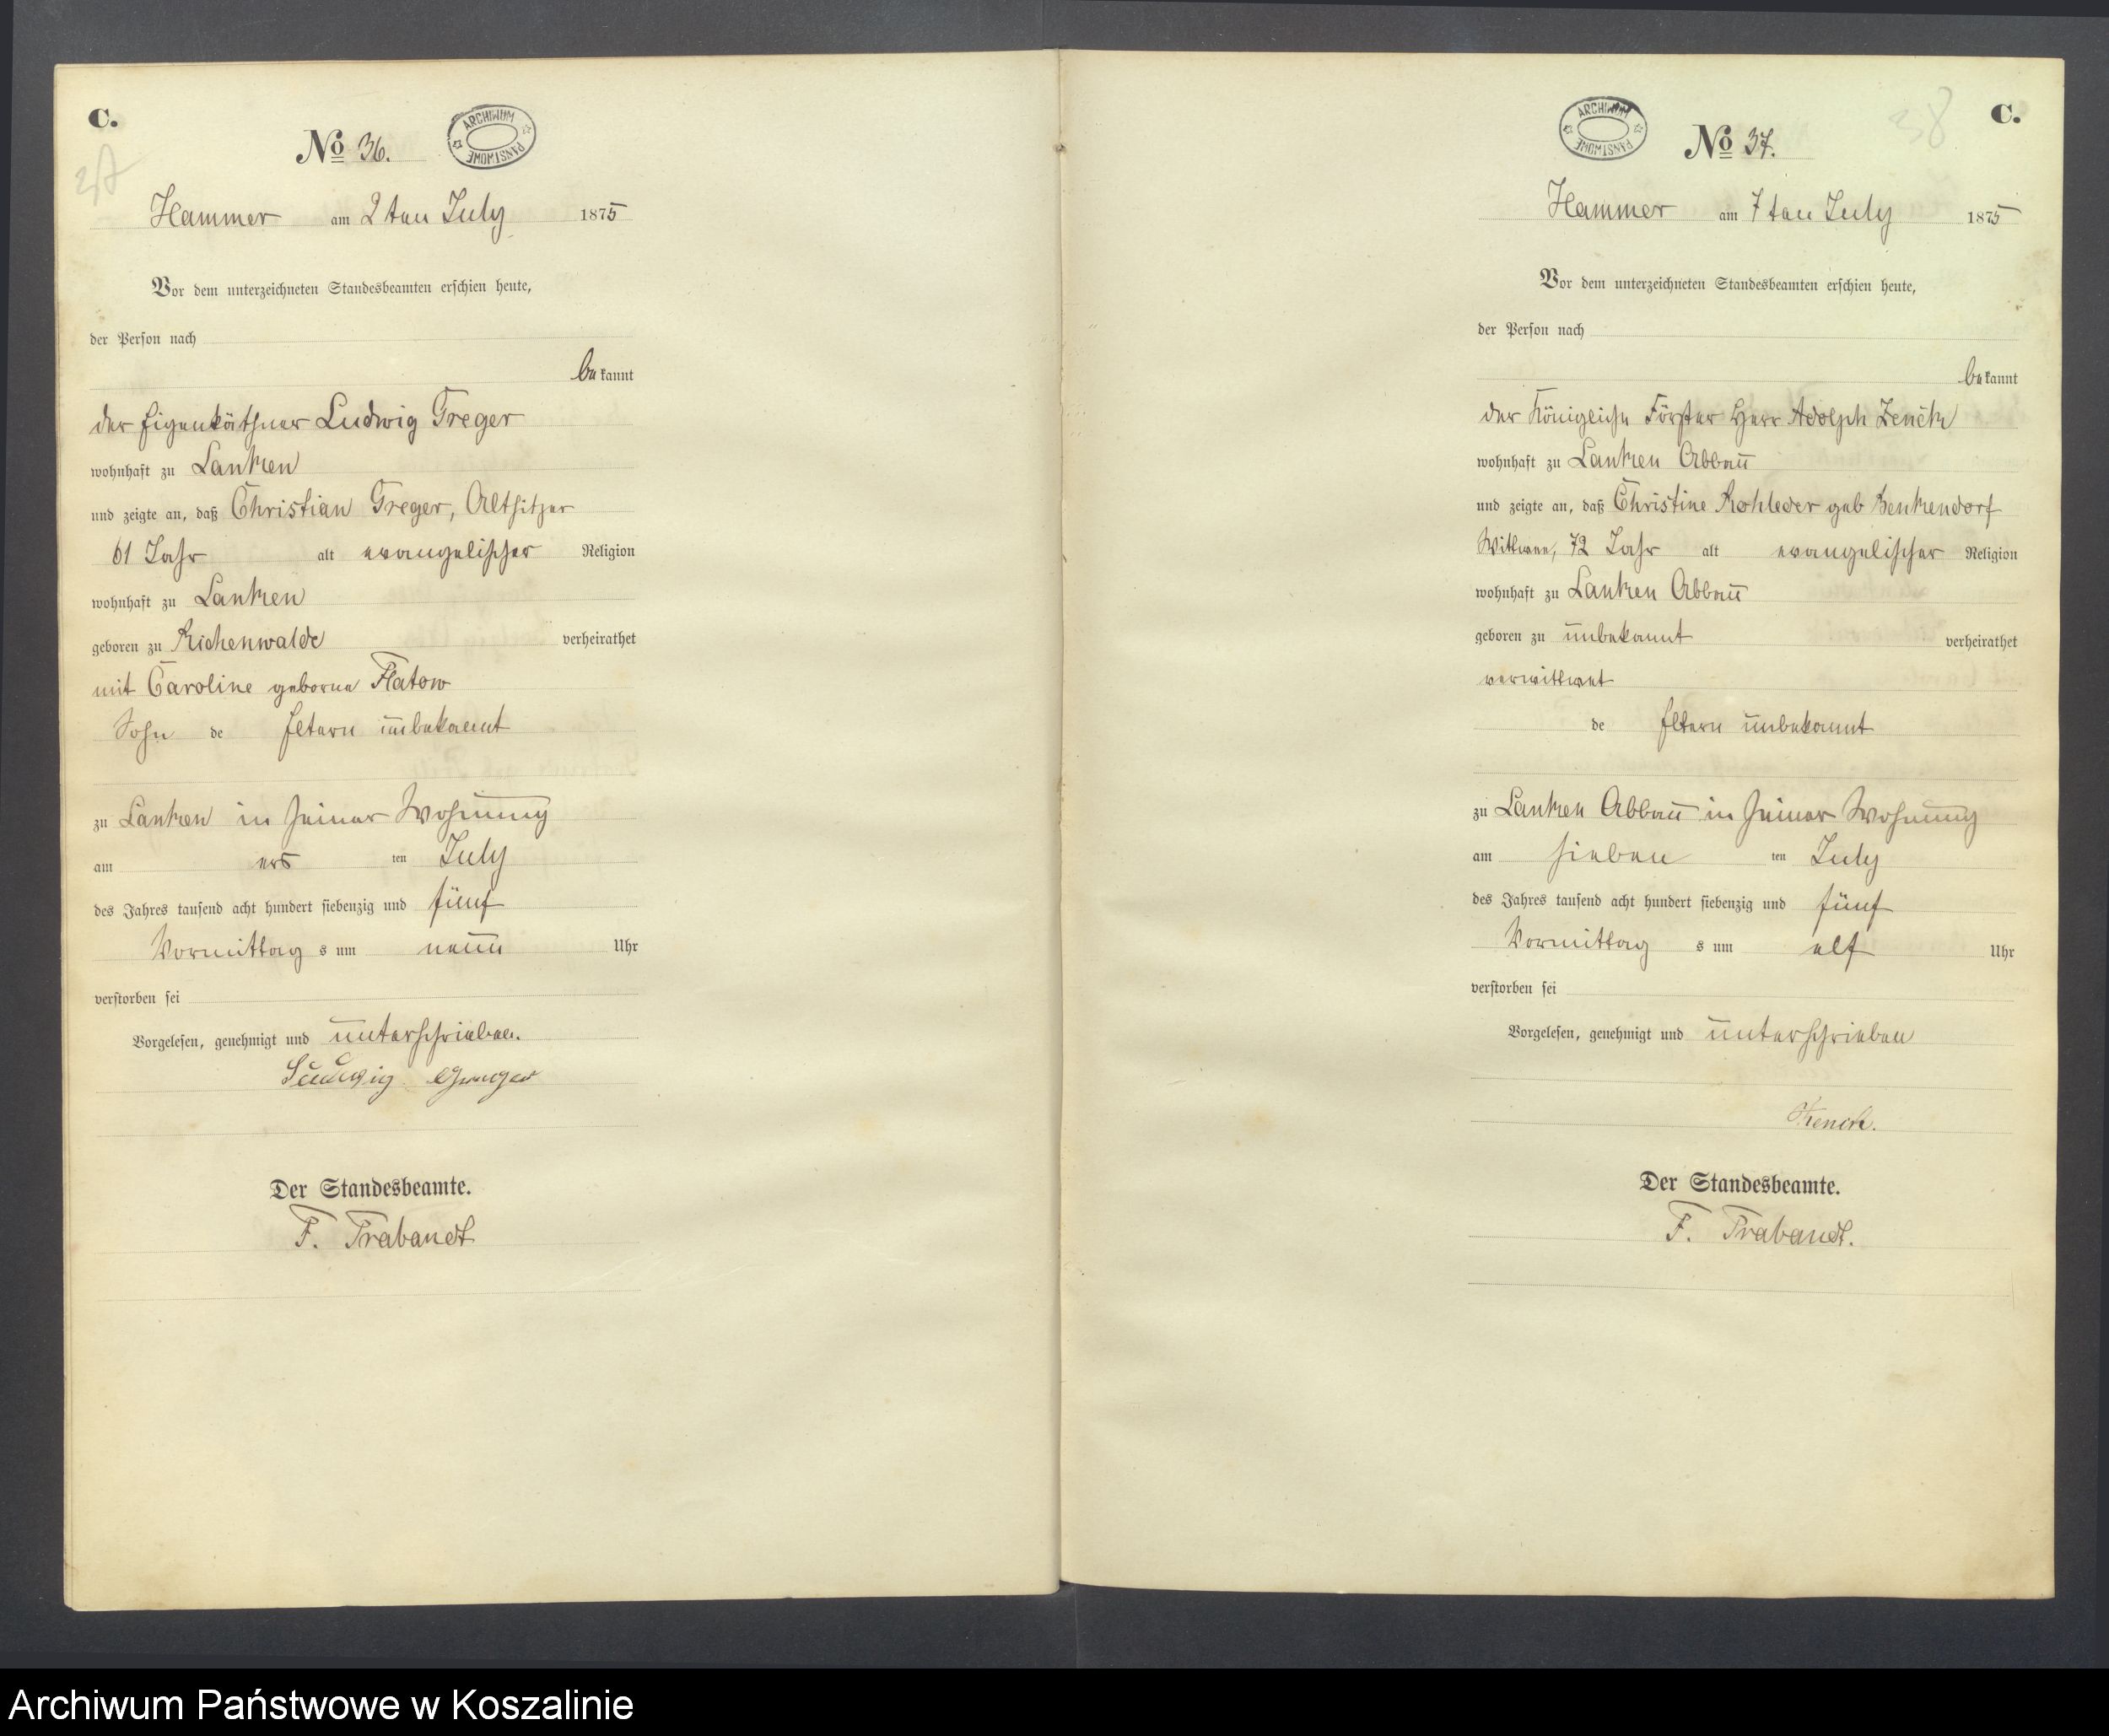 C.
No 36.
ARCHIWUM PAŃSTWOWE
37
Hammer am 2ten July 1875
Vor dem unterzeichneten Standesbeamten erschien heute,
der Person nach
bekannt
der Eigenkäthner Ludwig Greger
wohnhaft zu Lanken
und zeigte an, daß Christian Greger, Altsitzer
61 Jahr alt evangelischer Religion
wohnhaft zu Lanken
geboren zu Richenwalde verheirathet
mit Caroline geborne Flatow
Sohn de Eltern unbekannt
zu Lanken in seiner Wohnung
am ers ten July
des Jahres tausend acht hundert siebenzig und fünf
Vormittag s um neun Uhr
verstorben sei
Vorgelesen, genehmigt und unterschrieben.
Ludwig Greger
Der Standesbeamte.
F. Trabandt
C.
38
ARCHIWUM PAŃSTWOWE
No 37.
Hammer am 7ten July 1875
Vor dem unterzeichneten Standesbeamten erschien heute,
der Person nach
bekannt
der Königliche Förster Herr Adolph Zenck
wohnhaft zu Lanken Abbau
und zeigte an, daß Christine Rohleder geb Benkendorf
Wittwee, 72 Jahr alt evangelischer Religion
wohnhaft zu Lanken Abbau
geboren zu unbekannt verheirathet
verwittwet
de Eltern unbekannt
zu Lanken Abbau in seiner Wohnung
am sieben ten July
des Jahres tausend acht hundert siebenzig und fünf
Vormittag s um elf Uhr
verstorben sei
Vorgelesen, genehmigt und unterschrieben
Zenck.
Der Standesbeamte.
F. Trabandt.
Archiwum Państwowe w Koszalinie